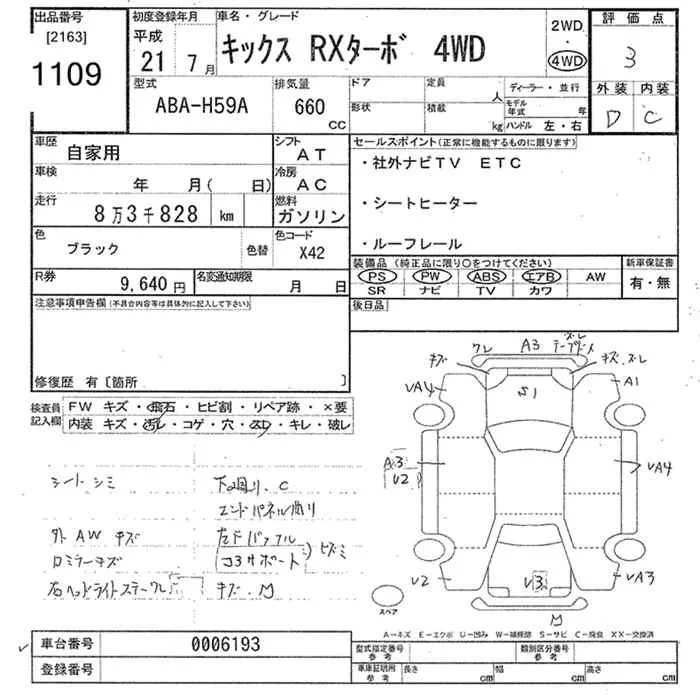 出品番号
[2163]
1109
初度登録年月
平成
21 7月
車名・グレード
キックス RXターボ 4WD
2WD
・
4WD
評価点
3
外装 内装
D C
型式
ABA-H59A
排気量
660
CC
ドア
定員
人
形状
積載
kg
ディーラー・並行
モデル年式
年
ハンドル 左・右
車歴
自家用
シフト
AT
車検
年 月( 日)
冷房
AC
走行
8万3千828 km
燃料
ガソリン
色
ブラック
色替
色コード
X42
R券
9,640円
名変通知期限
月 日
セールスポイント(正常に機能するものに限ります)
・社外ナビTV ETC
・シートヒーター
・ルーフレール
装備品(純正品に限り○をつけてください)
PS PW ABS エアB AW
SR ナビ TV カワ
新車保証書
有・無
後日品
注意事項申告欄(不具合内容等は具体的に記入して下さい)
修復歴 有〔箇所 〕
検査員
記入欄
FW キズ・飛石・ヒビ割・リペア跡・×要
内装 キズ・汚レ・コゲ・穴・スレ・キレ・破レ
シートシミ
下回り、C
エンドパネル曲り
外AW キズ
左Fバッフル
ロミラーキズ
コアサポート
右ヘッドライトステークレ
キズ、M
クレ
A3
ズレ
キズ
キズ、ズレ
UA4
S1
A1
A3
U2
UA4
U2
U3
UA3
M
スペア
A―キズ E―エクボ U―凹み W―補修跡 S―サビ C―腐食 XX―交換済
車台番号
0006193
登録番号
型式指定番号
参考
類別区分番号
参考
車庫証明用
参考
長さ
cm
幅
cm
高さ
cm